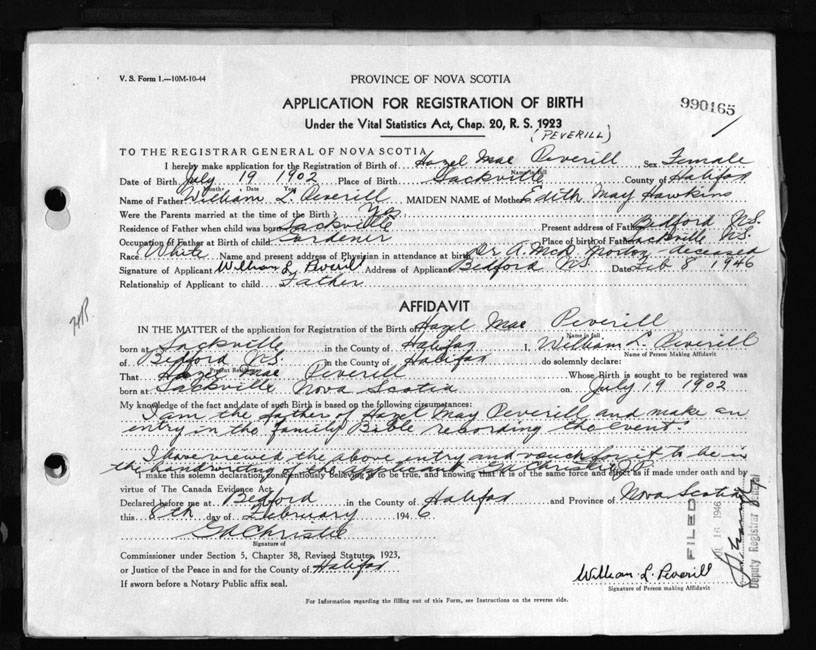 V. S. Form 1.—10M-10-44
PROVINCE OF NOVA SCOTIA
APPLICATION FOR REGISTRATION OF BIRTH
990165
Under the Vital Statistics Act, Chap. 20, R. S. 1923
(PEVERILL)
TO THE REGISTRAR GENERAL OF NOVA SCOTIA
I hereby make application for the Registration of Birth of Hazel Mae Peverill Sex Female
Name in full
Date of Birth July 19 1902 Place of Birth Sackville County of Halifax
Month Date Year
Name of Father William L. Peverill MAIDEN NAME of Mother Edith May Hawkins
Were the Parents married at the time of the Birth? Yes
Residence of Father when child was born Sackville Present address of Father Bedford N.S.
Occupation of Father at Birth of child Gardener Place of birth of Father Sackville N.S.
Race White Name and present address of Physician in attendance at birth Dr A. McD Morton deceased
Signature of Applicant William L. Peverill Address of Applicant Bedford N.S. Date Feb 8 1946
Relationship of Applicant to child Father
AFFIDAVIT
IN THE MATTER of the application for Registration of the Birth of Hazel Mae Peverill
Name in full
born at Sackville in the County of Halifax I, William L. Peverill
Name of Person Making Affidavit
of Bedford N.S. in the County of Halifax do solemnly declare:
Present Residence
That Hazel Mae Peverill Whose Birth is sought to be registered was
born at Sackville Nova Scotia on July 19 1902
My knowledge of the fact and date of such Birth is based on the following circumstances:
I am the father of Hazel May Peverill and make an
entry in the family Bible recording the event.
I have viewed the above entry and vouch for it to be in
the handwriting of the applicant GA Christie J.P.
I make this solemn declaration, conscientiously believing it to be true, and knowing that it is of the same force and effect as if made under oath and by
virtue of The Canada Evidence Act.
Declared before me at Bedford in the County of Halifax and Province of Nova Scotia
this 8th day of February 1946
GA Christie
Signature of
Commissioner under Section 5, Chapter 38, Revised Statutes, 1923,
or Justice of the Peace in and for the County of Halifax
If sworn before a Notary Public affix seal.
William L. Peverill
Signature of Person making Affidavit
FILED
16 1946
Deputy Registrar General
For Information regarding the filling out of this Form, see Instructions on the reverse side.